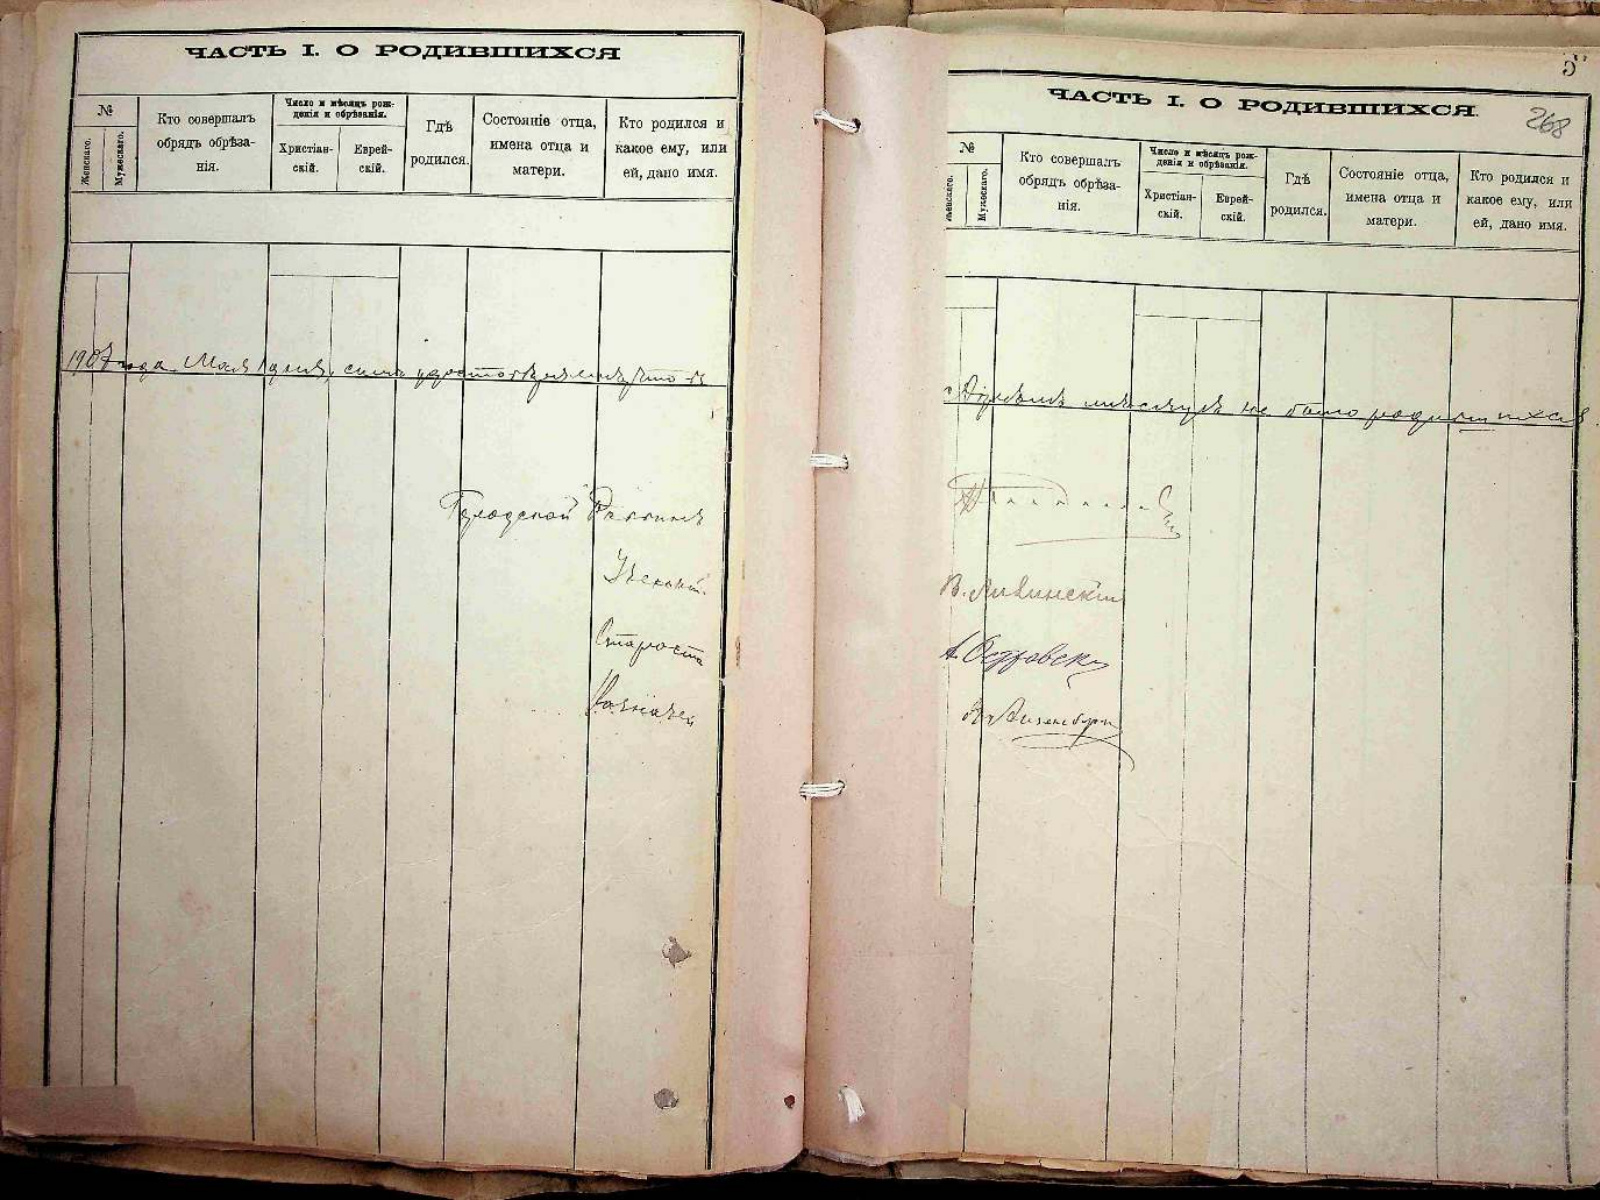 ЧАСТЬ I. О РОДИВШИХСЯ
№
Женскаго.
Мужескаго.
Кто совершалъ
обрядъ обрѣза-
нія.
Число и мѣсяцъ рож-
денія и обрѣзанія.
Христіан-
скій.
Еврей-
скій.
Гдѣ
родился.
Состояніе отца,
имена отца и
матери.
Кто родился и
какое ему, или
ей, дано имя.
1907 года Мая 1 дня, симъ удостовѣряемъ, что въ
Городской Раввинъ
Ученый
Староста
Казначей
5
268
ЧАСТЬ I. О РОДИВШИХСЯ.
№
Женскаго.
Мужескаго.
Кто совершалъ
обрядъ обрѣза-
нія.
Число и мѣсяцъ рож-
денія и обрѣзанія.
Христіан-
скій.
Еврей-
скій.
Гдѣ
родился.
Состояніе отца,
имена отца и
матери.
Кто родился и
какое ему, или
ей, дано имя.
Апрѣлѣ мѣсяцѣ не было родившихся
В.
А. Островски